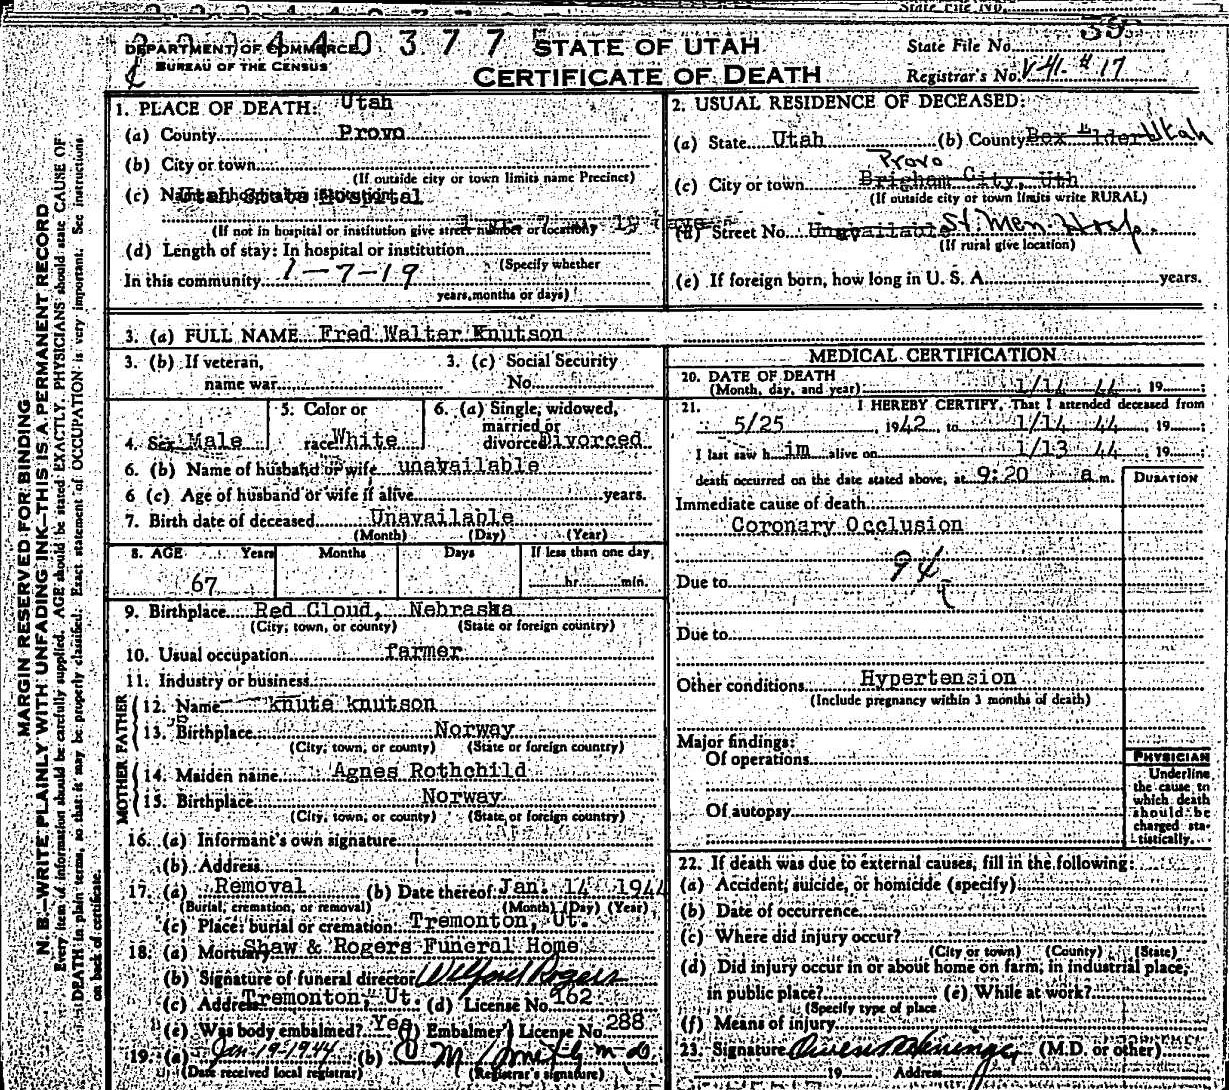 State File No.
2 2 2 4 4 0 3 7 7
DEPARTMENT OF COMMERCE
BUREAU OF THE CENSUS
STATE OF UTAH
CERTIFICATE OF DEATH
State File No. 35
Registrar's No. V-41-#17
MARGIN RESERVED FOR BINDING
N. B.—WRITE PLAINLY WITH UNFADING INK—THIS IS A PERMANENT RECORD
Every item of information should be carefully supplied. AGE should be stated EXACTLY. PHYSICIANS should state CAUSE OF
DEATH in plain terms, so that it may be properly classified. Exact statement of OCCUPATION is very important. See instructions
on back of certificate.
1. PLACE OF DEATH: Utah
(a) County Provo
(b) City or town
(If outside city or town limits name Precinct)
(c) Name of hospital or institution Utah State Hospital
(If not in hospital or institution give street number or location) 1 yr 7 m 19 days
(d) Length of stay: In hospital or institution
(Specify whether
In this community 1-7-19
years, months or days)
2. USUAL RESIDENCE OF DECEASED:
(a) State Utah (b) County Box Elder Utah
Provo
(c) City or town Brigham City, Uth
(If outside city or town limits write RURAL)
(d) Street No. Unavailable St. Men. Hosp.
(If rural give location)
(e) If foreign born, how long in U. S. A. years.
3. (a) FULL NAME Fred Walter Knutson
3. (b) If veteran, 3. (c) Social Security
name war No.
4. Sex Male
5. Color or
race White
6. (a) Single, widowed,
married or
divorced Divorced
6. (b) Name of husband or wife unavailable
6 (c) Age of husband or wife if alive years.
7. Birth date of deceased Unavailable
(Month) (Day) (Year)
8. AGE Years Months Days If less than one day
67 hr. min.
9. Birthplace Red Cloud, Nebraska
(City, town, or county) (State or foreign country)
10. Usual occupation farmer
11. Industry or business
FATHER
12. Name knute knutson
13. Birthplace Norway
(City, town, or county) (State or foreign country)
MOTHER
14. Maiden name Agnes Rothchild
15. Birthplace Norway
(City, town, or county) (State or foreign country)
16. (a) Informant's own signature
(b) Address
17. (a) Removal (b) Date thereof Jan. 14 1944
(Burial, cremation, or removal) (Month) (Day) (Year)
(c) Place: burial or cremation Tremonton, Ut.
18. (a) Mortuary Shaw & Rogers Funeral Home
(b) Signature of funeral director Wilford Rogers
(c) Address Tremonton, Ut. (d) License No. 162
(e) Was body embalmed? Yes (f) Embalmer's License No. 288
19. (a) Jan 19-1944 (b) M. D.
(Date received local registrar) (Registrar's signature)
MEDICAL CERTIFICATION
20. DATE OF DEATH
(Month, day, and year) 1/14 44, 19
21. I HEREBY CERTIFY, That I attended deceased from
5/25, 1942, to 1/14 44, 19
I last saw h im alive on 1/13 44, 19
death occurred on the date stated above, at 9:20 a m.
DURATION
Immediate cause of death
Coronary Occlusion
94
Due to
Due to
Other conditions Hypertension
(Include pregnancy within 3 months of death)
Major findings:
Of operations
Of autopsy
PHYSICIAN
Underline
the cause to
which death
should be
charged sta-
tistically.
22. If death was due to external causes, fill in the following:
(a) Accident, suicide, or homicide (specify)
(b) Date of occurrence
(c) Where did injury occur?
(City or town) (County) (State)
(d) Did injury occur in or about home on farm, in industrial place,
in public place? (e) While at work?
(Specify type of place
(f) Means of injury
23. Signature (M.D. or other)
19 Address